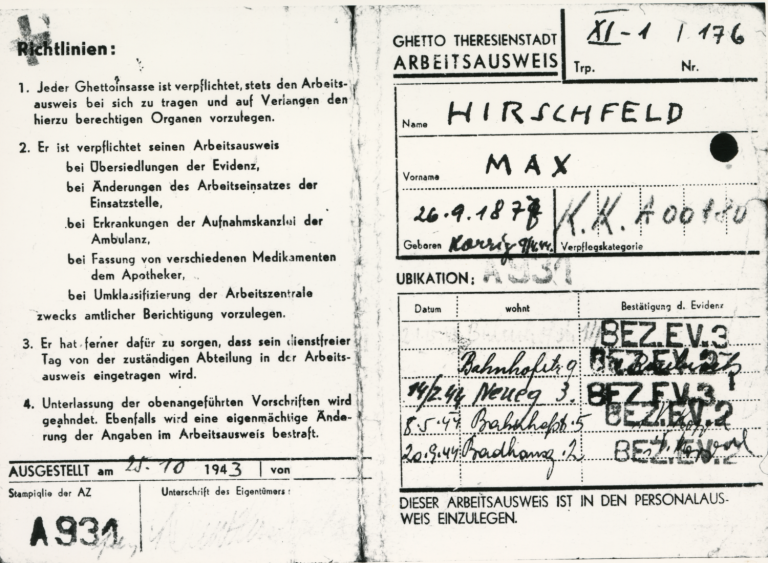 Richtlinien:
1. Jeder Ghettoinsasse ist verpflichtet, stets den Arbeits-
ausweis bei sich zu tragen und auf Verlangen den
hierzu berechtigten Organen vorzulegen.
2. Er ist verpflichtet seinen Arbeitsausweis
bei Übersiedlungen der Evidenz,
bei Änderungen des Arbeitseinsatzes der
Einsatzstelle,
bei Erkrankungen der Aufnahmskanzlei der
Ambulanz,
bei Fassung von verschiedenen Medikamenten
dem Apotheker,
bei Umklassifizierung der Arbeitszentrale
zwecks amtlicher Berichtigung vorzulegen.
3. Er hat ferner dafür zu sorgen, dass sein dienstfreier
Tag von der zuständigen Abteilung in der Arbeits-
ausweis eingetragen wird.
4. Unterlassung der obenangeführten Vorschriften wird
geahndet. Ebenfalls wird eine eigenmächtige Ände-
rung der Angaben im Arbeitsausweis bestraft.
AUSGESTELLT am 25. 10 1943 von
Stampiglie der AZ Unterschrift des Eigentümers:
A931
GHETTO THERESIENSTADT
ARBEITSAUSWEIS
XI-1 / 176
Trp. Nr.
Name HIRSCHFELD
Vorname MAX
26.9.187 K.K. A
Geboren Verpflegskategorie
UBIKATION: A931
Datum wohnt Bestätigung d. Evidenz
BEZ.EV.3
9
14/2.44 Neueg 3. BEZ.EV.3
8.5.44 5 BEZ.EV.2
20.9.44 Badhausg. 2 BEZ.EV.2
DIESER ARBEITSAUSWEIS IST IN DEN PERSONALAUS-
WEIS EINZULEGEN.